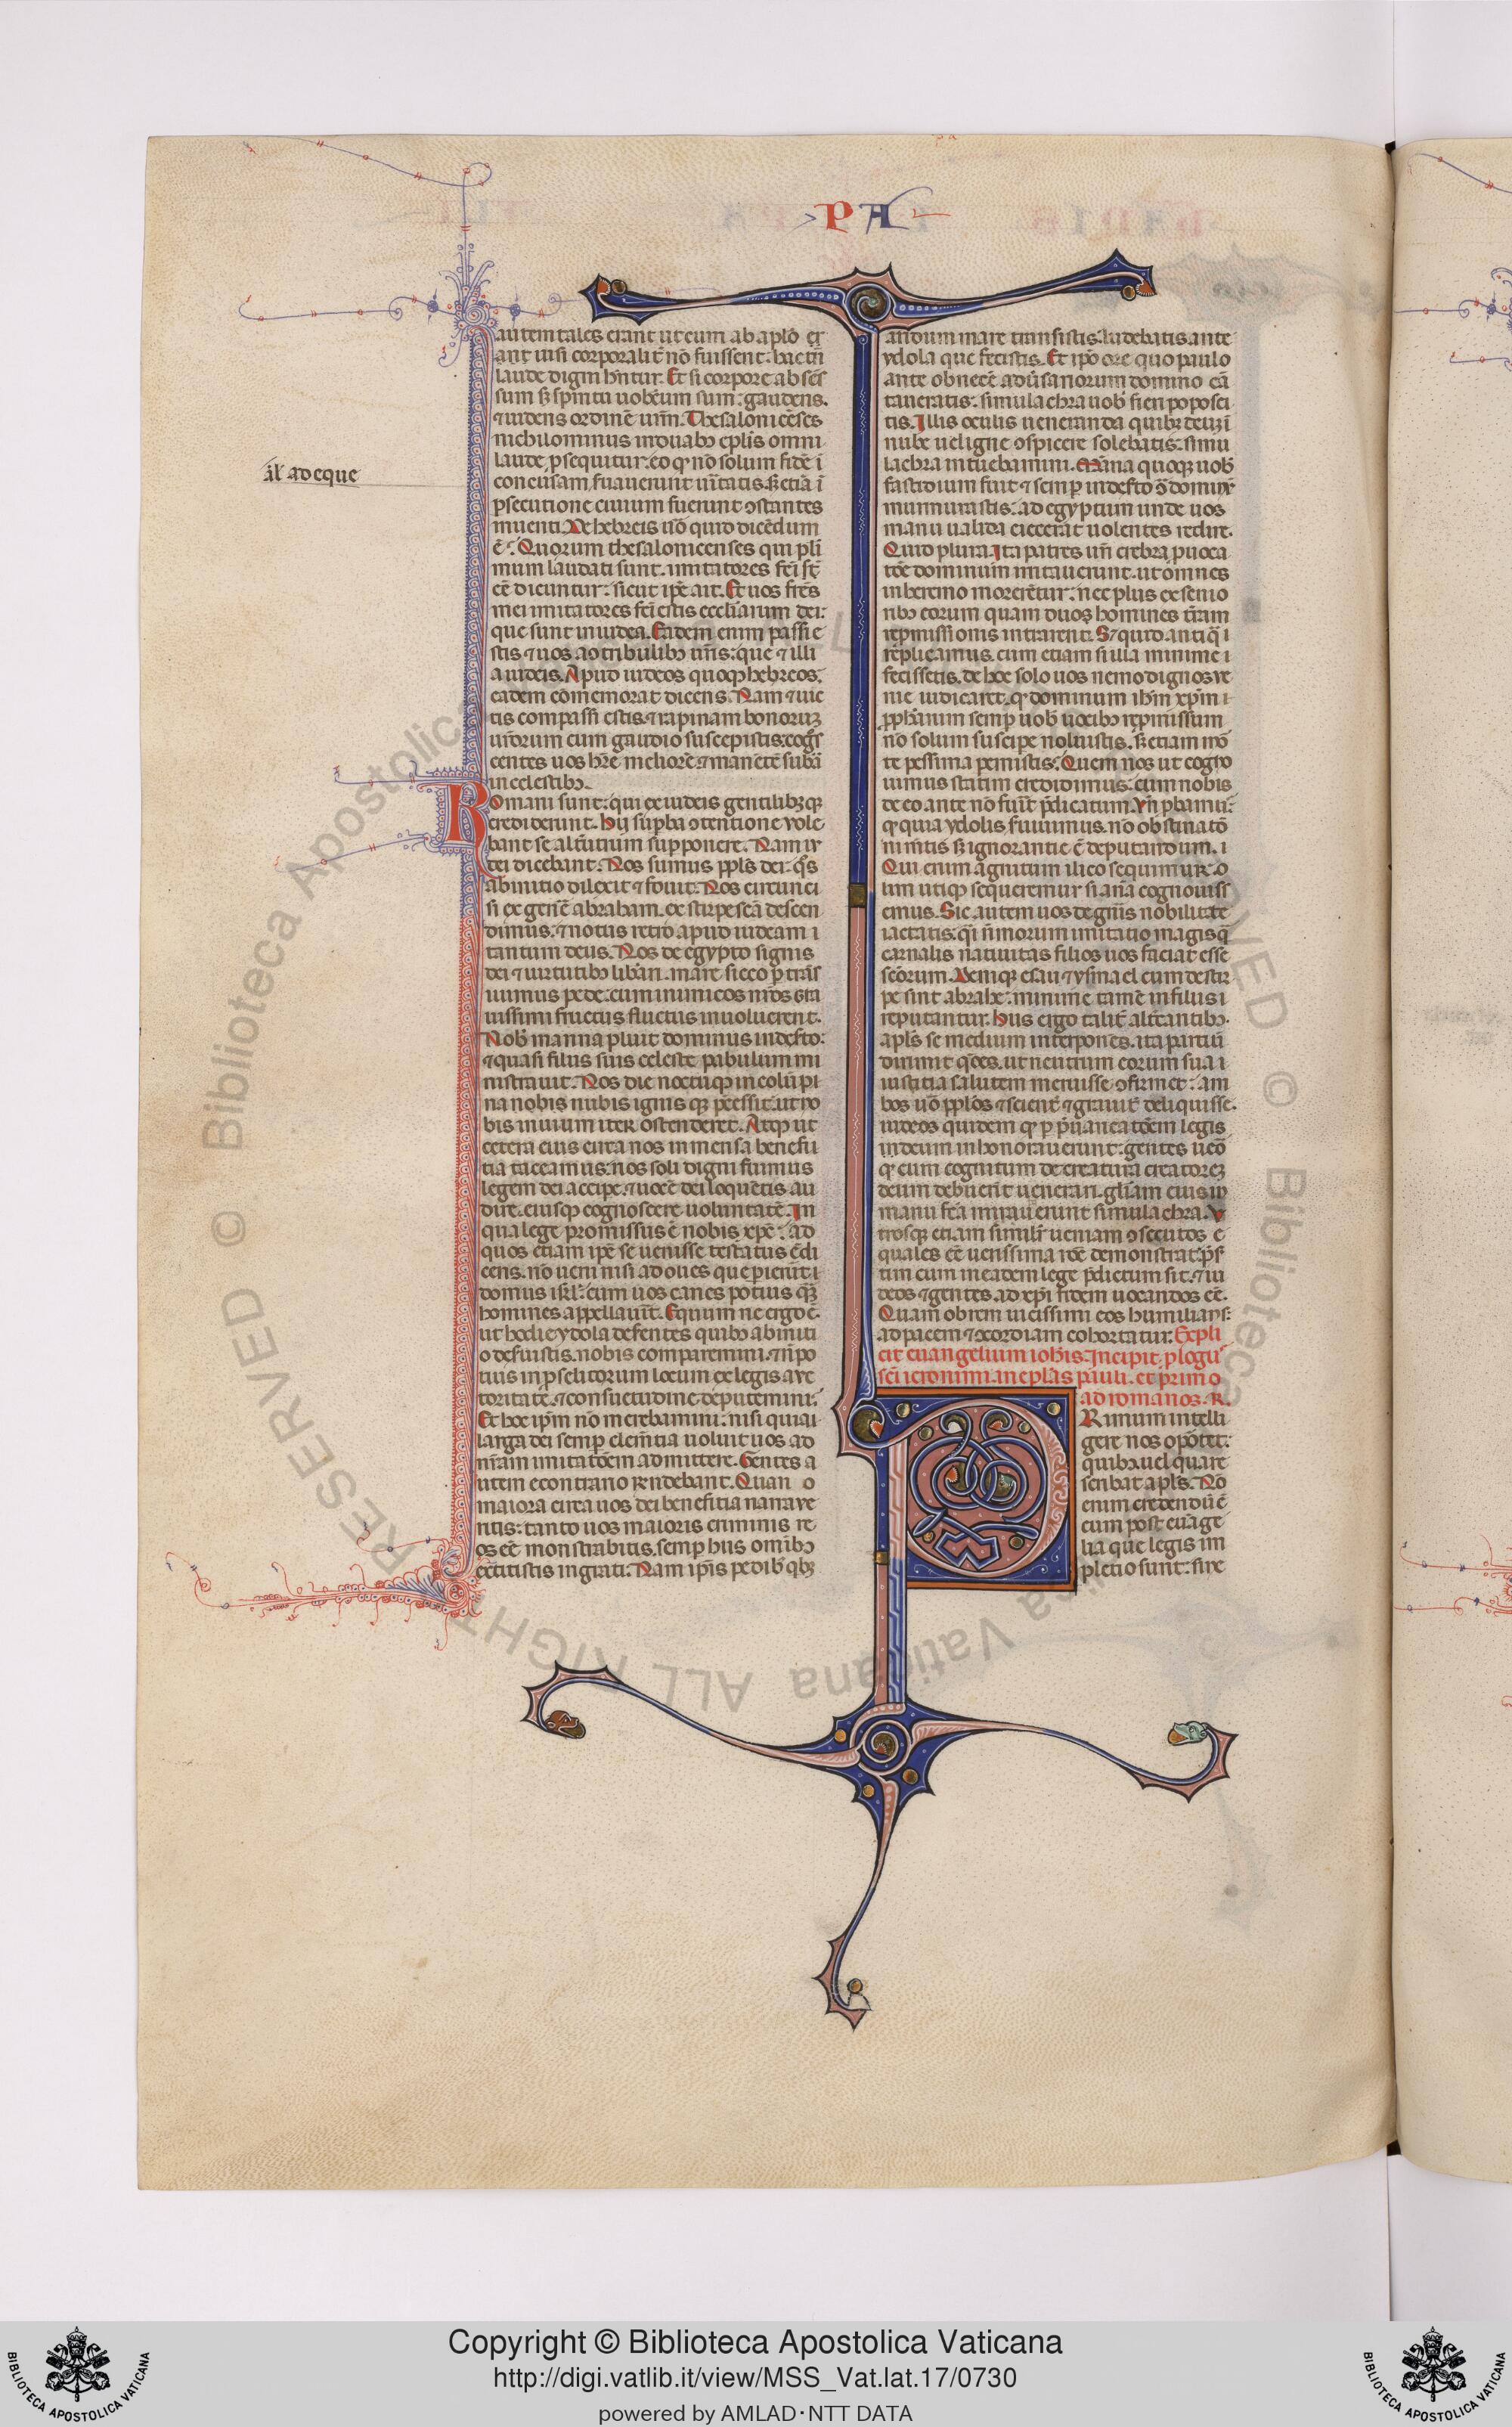 PA
autem tales erant ut cum ab aplo er
ant uisi corporalit̄ nō fuissent: hac tn̄
laude digni hn̄tur. Et si corpore absēs
sum sꝫ spiritu uobcum sum: gaudens.
⁊ uidens ordinē ur̄m. Thesalonicēses
nichilominus in duabꝫ eplis omni
laude ꝓsequitur: eo qꝫ nō solum fidē ī
concusam seruauerunt ueritatis. sꝫ etiā ī
ꝑsecutione ciuium fuerunt ꝯstantes
inuenti. De hebreis uō quid dicēdum
ē? Quorum thesalonicenses qui pl̄i
mum laudati sunt. imitatores fc̄i sē
eē dicuntur: sicut ip̄e ait. Et uos fr̄es
mei imitatores fc̄i estis eccl̄iarum dei:
que sunt in iudea. Eadem enim passi e
stis ⁊ uos. a ↄtribulibꝫ ur̄is: que ⁊ illi
a iudeis. Apud iudeos quoqꝫ hebreos.
eadem cōmemorat dicens. Nam ⁊ uic
tis compassi estis. ⁊ rapinam bonorum
ur̄orum cum gaudio suscepistis. cogs
centes uos hr̄e meliorē ⁊ manētē subā
in celestibꝫ.
āl adeque
Romani sunt: qui ex iudeis gentilibꝫqꝫ
crediderunt. Hij suꝑba ꝯtentione uole
bant se alt̄utrum supponere. Nam iu
dei dicebant. Nos sumus ppls dei. q̄s
ab initio dilexit ⁊ fouit. Nos circunci
si ex gen̄e abraham. ex stirpe sc̄a descen
dimus: ⁊ notus retro apud iudeam i
tantum deus. Nos de egypto signis
dei ⁊ uirtutibꝫ libāti. mare sicco ꝑ trās
iuimus pede: cum inimicos nr̄os gͣa
uissimi fructus fluctus inuoluerent.
Nob̄ manna pluit dominus in desto:
⁊ quasi filiis suis celeste pabulum mi
nistrauit. Nos die noctuqꝫ in colūpi
na nobis nubis ignis qꝫ p̄cessit: ut no
bis in uium iter ostenderet. Atqꝫ ut
cetera eius circa nos inmensa benefi
tia taceamus: nos soli digni fuimus
legem dei accipe. ⁊ uocē dei loquētis au
dire. eiusqꝫ cognoscere uoluntatē. In
qua lege promissus ē nobis xp̄c: ad
quos etiam ip̄e se uenisse testatus ē di
cens. nō ueni nisi ad oues que ꝑierūt i
domus isrl̄: cum uos canes potius qͣꝫ
homines appellauit̄. Equum ne ergo ē.
ut hodie ydola deserentes quibꝫ ab initi
o deseruistis. nobis comparemini. ⁊ n̄ po
tius in ꝓselitorum locum ex legis auc
toritatē. ⁊ consuetudine deputemini?
Et hoc ip̄m nō merebamini: nisi quia i
larga dei semꝑ clem̄tia uoluit uos ad
nr̄am imitatōem admittere. Gentes a
utem econtrario respondebant. Quan o
maiora circa uos dei benefitia narraue
ritis: tanto uos maioris criminis re
os eē monstrabitis. semꝑ hiis omībꝫ
extitistis ingrati. Nam ip̄is pedibꝫ qͥbꝫ
aridum mare transistis. ludebatis ante
ydola que fecistis. Et ip̄o ore quo paulo
ante ob necē adūsariorum domino cā
taueratis: simulachra uob̄ fieri poposci
tis. Illis oculis ueneranda quibꝫ deum ī
nube uel igne ꝯspicere solebatis: simu
lachra intuebamini. Manna quoqꝫ uob̄
fastidium fuit ⁊ semꝑ in desto ꝯ dominū
murmurastis: ad egyptum unde uos
manu ualida eiecerat uolentes redire.
Quid plura. Ita patres ur̄i crebra ꝓuoca
tōe dominum irritauerunt. ut omnes
in heremo morerētur: nec plus ex senio
ribꝫ eorum quam duos homines t̄ram
repmissionis intrarent. Sꝫ quid antiqͣ i
replicamus. cum etiam si illa minime i
fecissetis. de hoc solo uos nemo dignos ue
nie iudicaret. qꝫ dominum ih̄m xp̄m i
ꝓphetarum semꝑ uob̄ uocibꝫ repmissum
nō solum suscipe noluistis. sꝫ etiam mo
te pessima pemistis. Quem nos ut cogno
uimus statim credidimus: cum nobis
de eo ante nō fuīt p̄dicatum. Vn̄ pbamur:
qꝫ quia ydolis seruiuimus. nō obstinatō
ni mētis sꝫ ignorantie ē deputandum. i
Qui enim agnitum ilico sequimur. o
lim utiqꝫ sequeremur si antea cognouiss
emus. Sic autem uos de gn̄is nobilitate
iactatis: qͣi n̄ morum imitatio magis qͣ
carnalis natiuitas filios uos faciat esse
sc̄orum. Deniqꝫ esau ⁊ ysmael cum de stir
pe sint abrahe: minime tamē in filiis i
reputantur. Hiis ergo talit̄ alt̄cantibꝫ.
apl̄s se medium interponēs. ita partiū
dirimit q̄ōes. ut neutrum eorum sua i
iustitia salutem meruisse ꝯfirmet: am
bos uō ppl̄os ⁊ scient̄ ⁊ grauit̄ deliquisse.
iudeos quidem qꝫ ꝑ p̄uaricatōem legis
in deum inhonorauerunt: gentes uerō
qꝫ cum cognitum de creatura creatorem
deum debuerint uenerari. gl̄iam eius in
manu fc̄a mutauerunt simulachra. V
trosqꝫ etiam simili ueniam ꝯsecutos e
quales eē uerissima rōe demonstrat: p̄s
tim cum in eadem lege p̄dictum sit. ⁊ iu
deos ⁊ gentes. ad xp̄i fidem uocandos eē.
Quam obrem uicissim eos humilians:
ad pacem ⁊ ↄcordiam cohortatur: Expli
cit euangelium ioh̄is. Incipit ꝓlogus
sc̄i ieronimi in eplās pauli. et primo
ad romanos. R.
Rimum intelli
gere nos oportet:
quibꝫ uel quare
scribat apl̄s. Nō
enim credendū ē
cum post euāge
lia que legis im
pletio sunt: si re
Copyright © Biblioteca Apostolica Vaticana
http://digi.vatlib.it/view/MSS_Vat.lat.17/0730
powered by AMLAD·NTT DATA
BIBLIOTECA APOSTOLICA VATICANA
BIBLIOTECA APOSTOLICA VATICANA